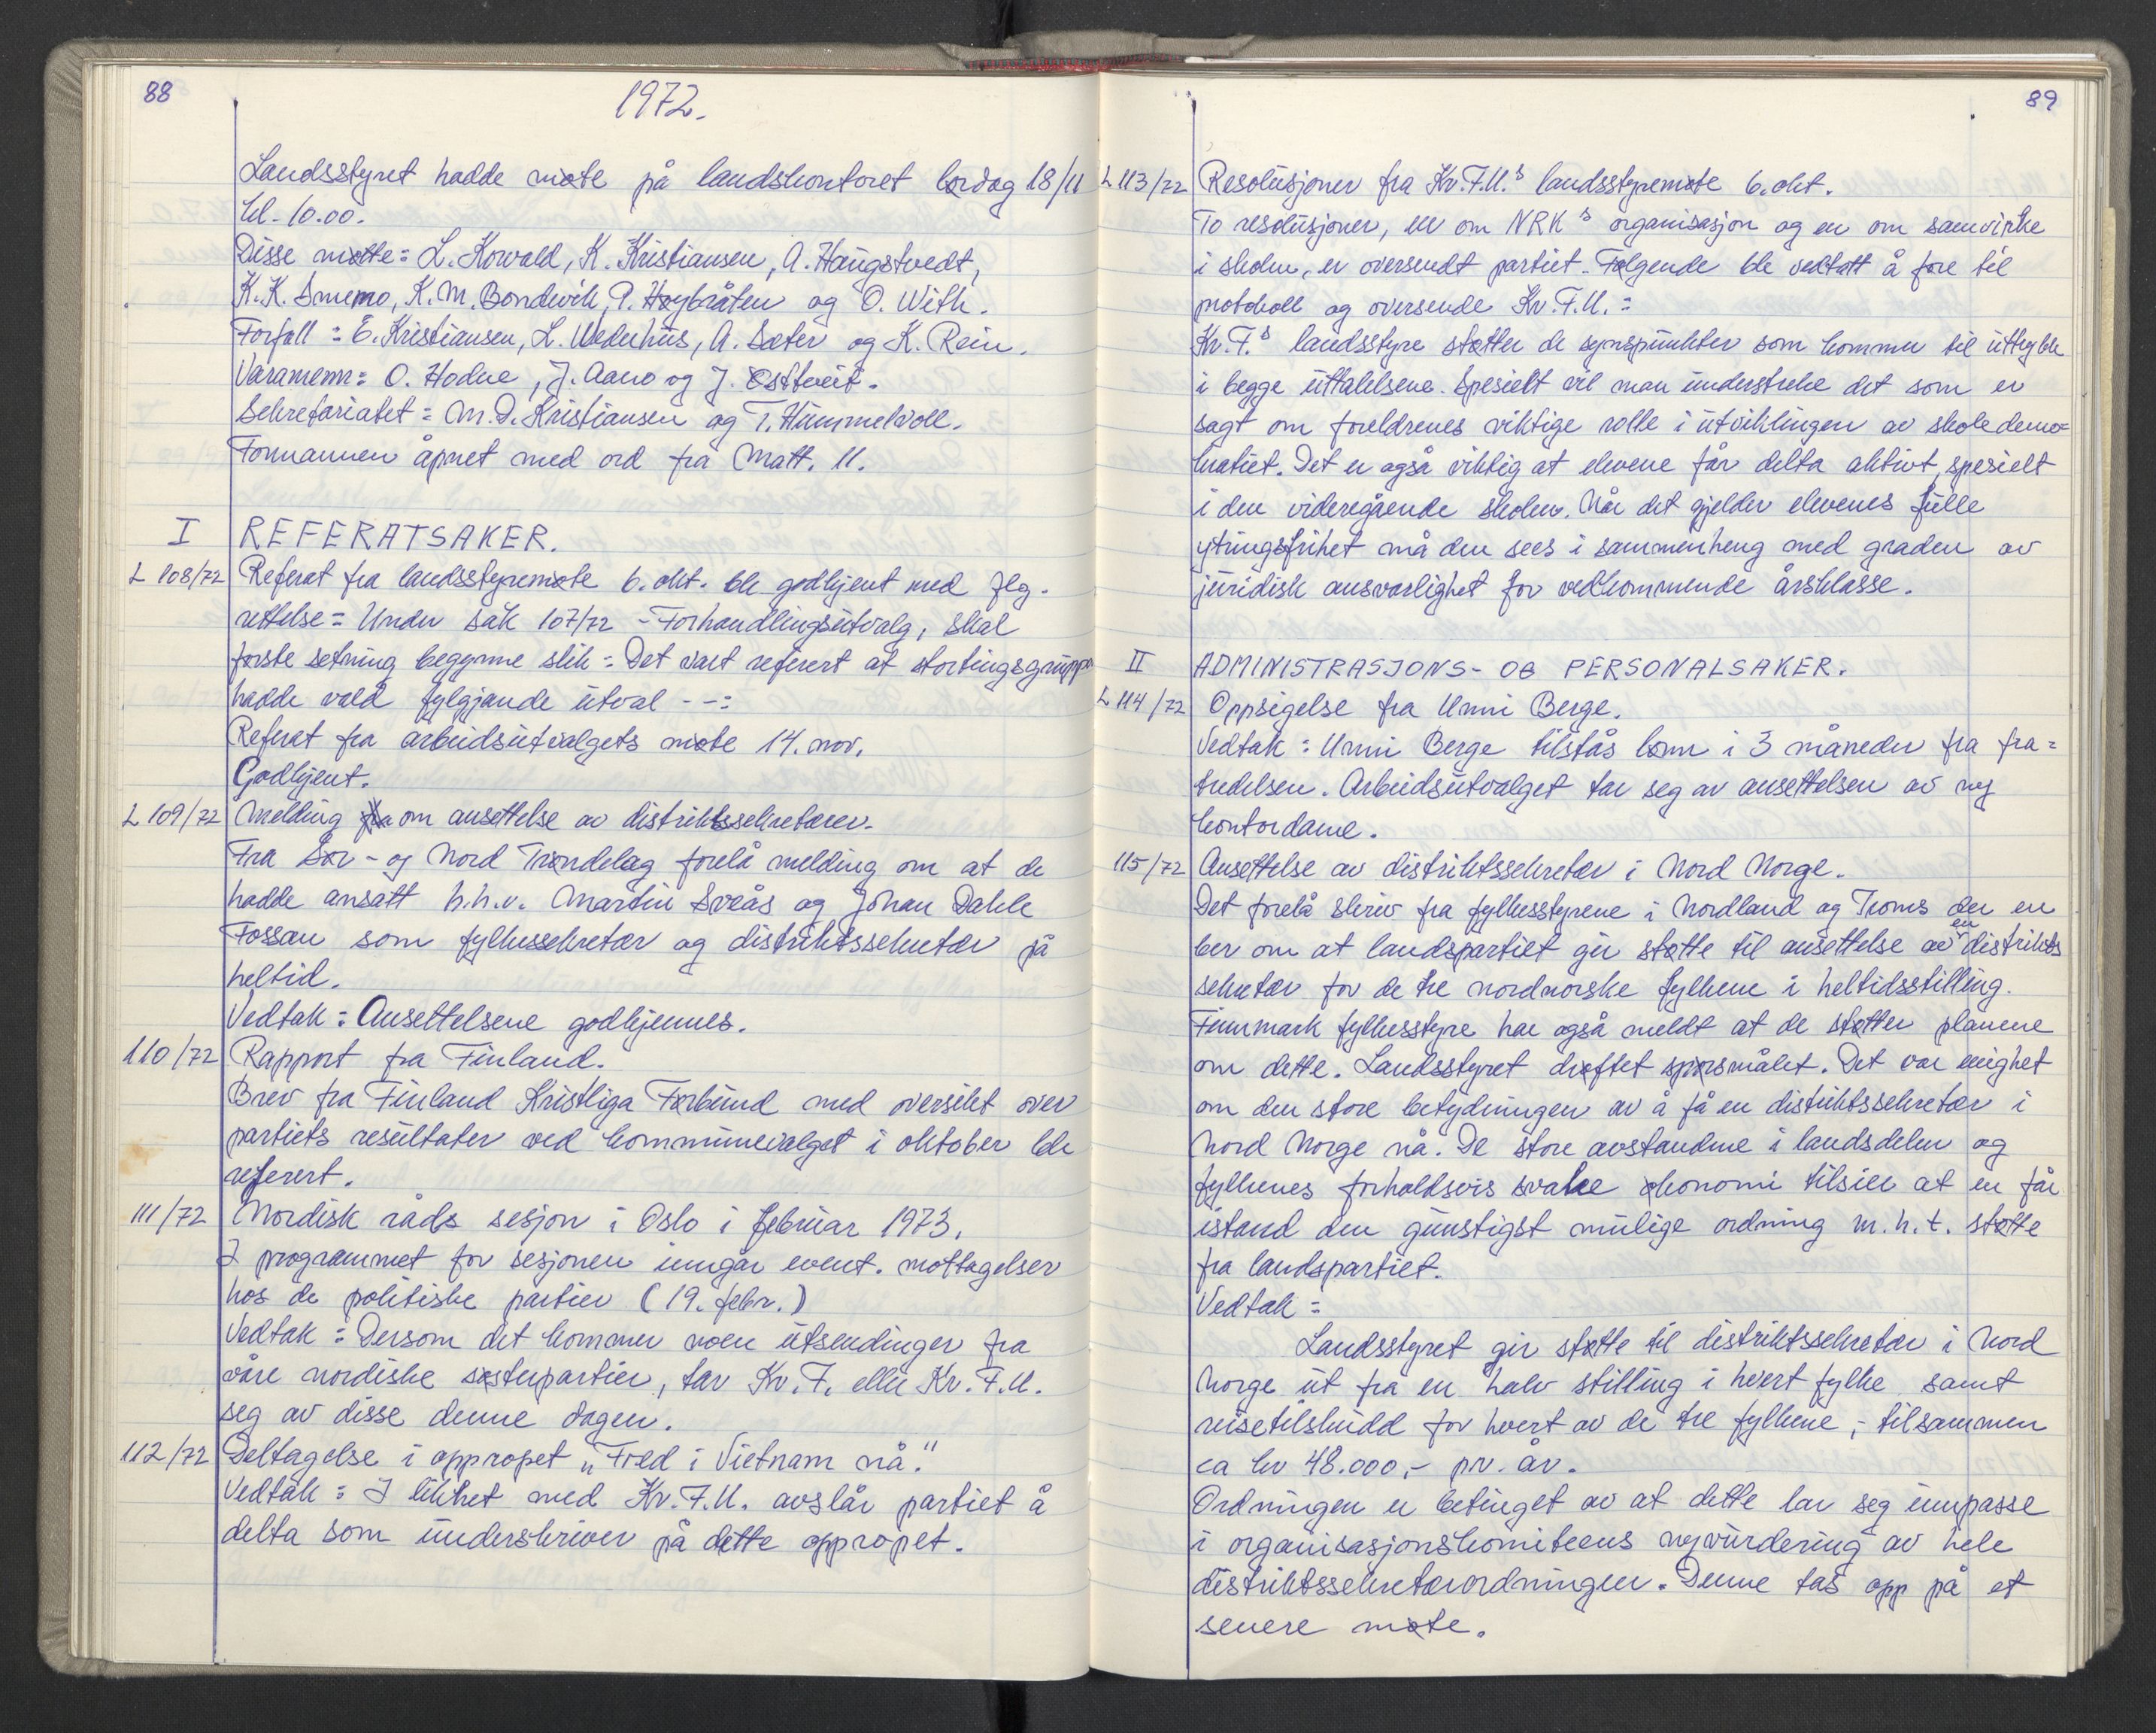 88
1972.
Landsstyret hadde møte på landskontoret lørdag 18/11
kl. 10.00.
Disse møtte: L. Korvald, K. Kristiansen, A. Haugstvedt,
K.K. Smemo, K.M. Bondevik, P. Høybråten og O. With.
Forfall: E. Kristiansen, L. Vedenhus, A. Sæter og K. Rein.
Varamenn: O. Hodne, J. Aano og J. Østtveit.
Sekretariatet: M.D. Kristiansen og T. Hummelvoll.
Formannen åpnet med ord fra Matt. 11.
I REFERATSAKER.
L 108/72 Referat fra landsstyremøte 6. okt. ble godkjent med flg.
rettelse: Under sak 107/72 - Forhandlingsutvalg, skal
første setning begynne slik: Det vart referert at stortingsgruppa
hadde vald fylgjande utval --:
Referat fra arbeidsutvalgets møte 14. nov.
Godkjent.
L 109/72 Melding om ansettelse av distriktssekretærer.
Fra Sør- og Nord Trøndelag forelå melding om at de
hadde ansatt h.h.v. Martin Sveås og Johan Dahle
Fossan som fylkessekretær og distriktssekretær på
heltid.
Vedtak: Ansettelsene godkjennes.
110/72 Rapport fra Finland.
Brev fra Finland Kristliga Førbund med oversikt over
partiets resultater ved kommunevalget i oktober ble
referert.
111/72 Nordisk råds sesjon i Oslo i februar 1973.
I programmet for sesjonen inngår event. mottagelser
hos de politiske partier (19. febr.)
Vedtak: Dersom det kommer noen utsendinger fra
våre nordiske søsterpartier, tar Kr.F. eller Kr.F.U.
seg av disse denne dagen.
112/72 Deltagelse i oppropet „Fred i Vietnam nå."
Vedtak: I likhet med Kr.F.U. avslår partiet å
delta som underskriver på dette oppropet.
89
L 113/72 Resolusjoner fra Kr.F.U.s landsstyremøte 6. okt.
To resolusjoner, en om NRKs organisasjon og en om samvirke
i skolen, er oversendt partiet. Følgende ble vedtatt å føre til
protokoll og oversende Kr.F.U.:
Kr.F.s landsstyre støtter de synspunkter som kommer til uttrykk
i begge uttalelsene. Spesielt vil man understreke det som er
sagt om foreldrenes viktige rolle i utviklingen av skoledemo=
kratiet. Det er også viktig at elevene får delta aktivt, spesielt
i den videregående skolen. Når det gjelder elevenes fulle
ytringsfrihet må den sees i sammenheng med graden av
juridisk ansvarlighet for vedkommende årsklasse.
II ADMINISTRASJONS- OG PERSONALSAKER.
L 114/72 Oppsigelse fra Unni Berge.
Vedtak: Unni Berge tilstås lønn i 3 måneder fra fra=
tredelsen. Arbeidsutvalget tar seg av ansettelsen av ny
kontordame.
115/72 Ansettelse av distriktssekretær i Nord Norge.
Det forelå skriv fra fylkesstyrene i Nordland og Troms der en
ber om at landspartiet gir støtte til ansettelse av en distrikts
sekretær for de tre nordnorske fylkene i heltidsstilling.
Finnmark fylkesstyre har også meldt at de støtter planene
om dette. Landsstyret drøftet spørsmålet. Det var enighet
om den store betydningen av å få en distriktssekretær i
Nord Norge nå. De store avstandene i landsdelen og
fylkenes forholdsvis svake økonomi tilsier at en får
istand den gunstigst mulige ordning m.h.t. støtte
fra landspartiet.
Vedtak:
Landsstyret gir støtte til distriktssekretær i Nord
Norge ut fra en halv stilling i hvert fylke samt
reisetilskudd for hvert av de tre fylkene, - tilsammen
ca kr 48.000,- pr. år.
Ordningen er betinget av at dette lar seg innpasse
i organisasjonskomiteens nyvurdering av hele
distriktssekretærordningen. Denne tas opp på et
senere møte.